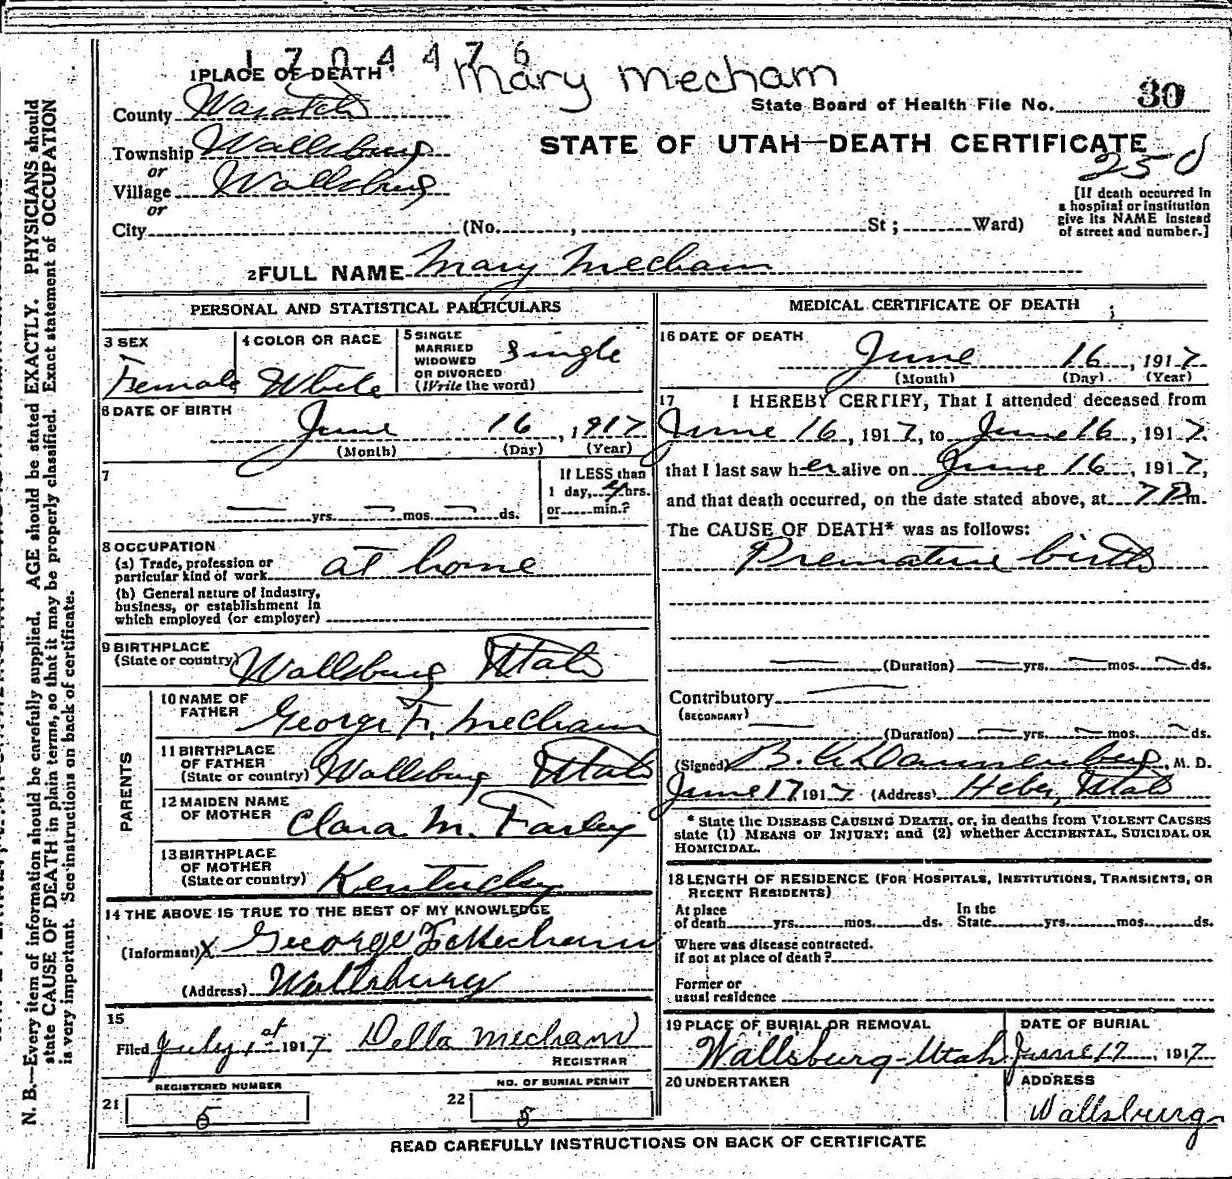 1704476
Mary Mecham
1 PLACE OF DEATH
County Wasatch
State Board of Health File No. 30
STATE OF UTAH—DEATH CERTIFICATE
250
Township Wallsburg
or
Village Wallsburg
or
City (No. , St ; Ward)
[If death occurred in
a hospital or institution
give its NAME instead
of street and number.]
2 FULL NAME Mary Mecham
PERSONAL AND STATISTICAL PARTICULARS
3 SEX
Female
4 COLOR OR RACE
White
5 SINGLE
MARRIED
WIDOWED
OR DIVORCED
(Write the word)
Single
6 DATE OF BIRTH
June 16, 1917
(Month) (Day) (Year)
7
yrs. mos. ds.
If LESS than
1 day, 4 hrs.
or min.?
8 OCCUPATION
(a) Trade, profession or
particular kind of work at home
(b) General nature of Industry,
business, or establishment in
which employed (or employer)
9 BIRTHPLACE
(State or country) Wallsburg Utah
PARENTS
10 NAME OF
FATHER George F. Mecham
11 BIRTHPLACE
OF FATHER
(State or country) Wallsburg Utah
12 MAIDEN NAME
OF MOTHER Clara M. Farley
13 BIRTHPLACE
OF MOTHER
(State or country) Kentucky
14 THE ABOVE IS TRUE TO THE BEST OF MY KNOWLEDGE
(Informant) X George F Mecham
(Address) Wallsburg
15
Filed July 1st 1917 Della Mecham
REGISTRAR
REGISTERED NUMBER
21 5
NO. OF BURIAL PERMIT
22 5
MEDICAL CERTIFICATE OF DEATH
16 DATE OF DEATH
June 16, 1917
(Month) (Day) (Year)
17 I HEREBY CERTIFY, That I attended deceased from
June 16, 1917, to June 16, 1917.
that I last saw her alive on June 16, 1917,
and that death occurred, on the date stated above, at 7 P m.
The CAUSE OF DEATH* was as follows:
Premature birth
(Duration) yrs. mos. ds.
Contributory
(SECONDARY)
(Duration) yrs. mos. ds.
(Signed) Dannenberg, M. D.
June 17 1917 (Address) Heber, Utah
* State the DISEASE CAUSING DEATH, or, in deaths from VIOLENT CAUSES
state (1) MEANS OF INJURY; and (2) whether ACCIDENTAL, SUICIDAL OR
HOMICIDAL.
18 LENGTH OF RESIDENCE (FOR HOSPITALS, INSTITUTIONS, TRANSIENTS, OR
RECENT RESIDENTS)
At place
of death yrs. mos. ds.
In the
State yrs. mos. ds.
Where was disease contracted.
if not at place of death?
Former or
usual residence
19 PLACE OF BURIAL OR REMOVAL
Wallsburg Utah
DATE OF BURIAL
June 17, 1917
20 UNDERTAKER
ADDRESS
Wallsburg
READ CAREFULLY INSTRUCTIONS ON BACK OF CERTIFICATE
N. B.—Every item of information should be carefully supplied. AGE should be stated EXACTLY. PHYSICIANS should
state CAUSE OF DEATH in plain terms, so that it may be properly classified. Exact statement of OCCUPATION
is very important. See instructions on back of certificate.